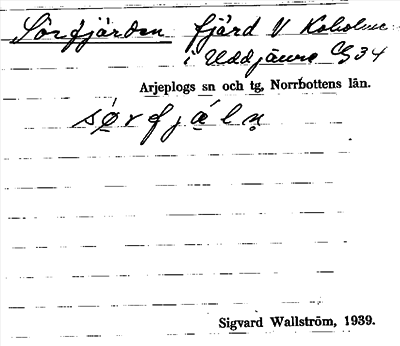 Sörfjärden fjärd V Koholme
i Uddjaure CG34
Arjeplogs sn och tg, Norrbottens län.
sǿ̱rfjæ̱̀lṇ
Sigvard Wallström, 1939.